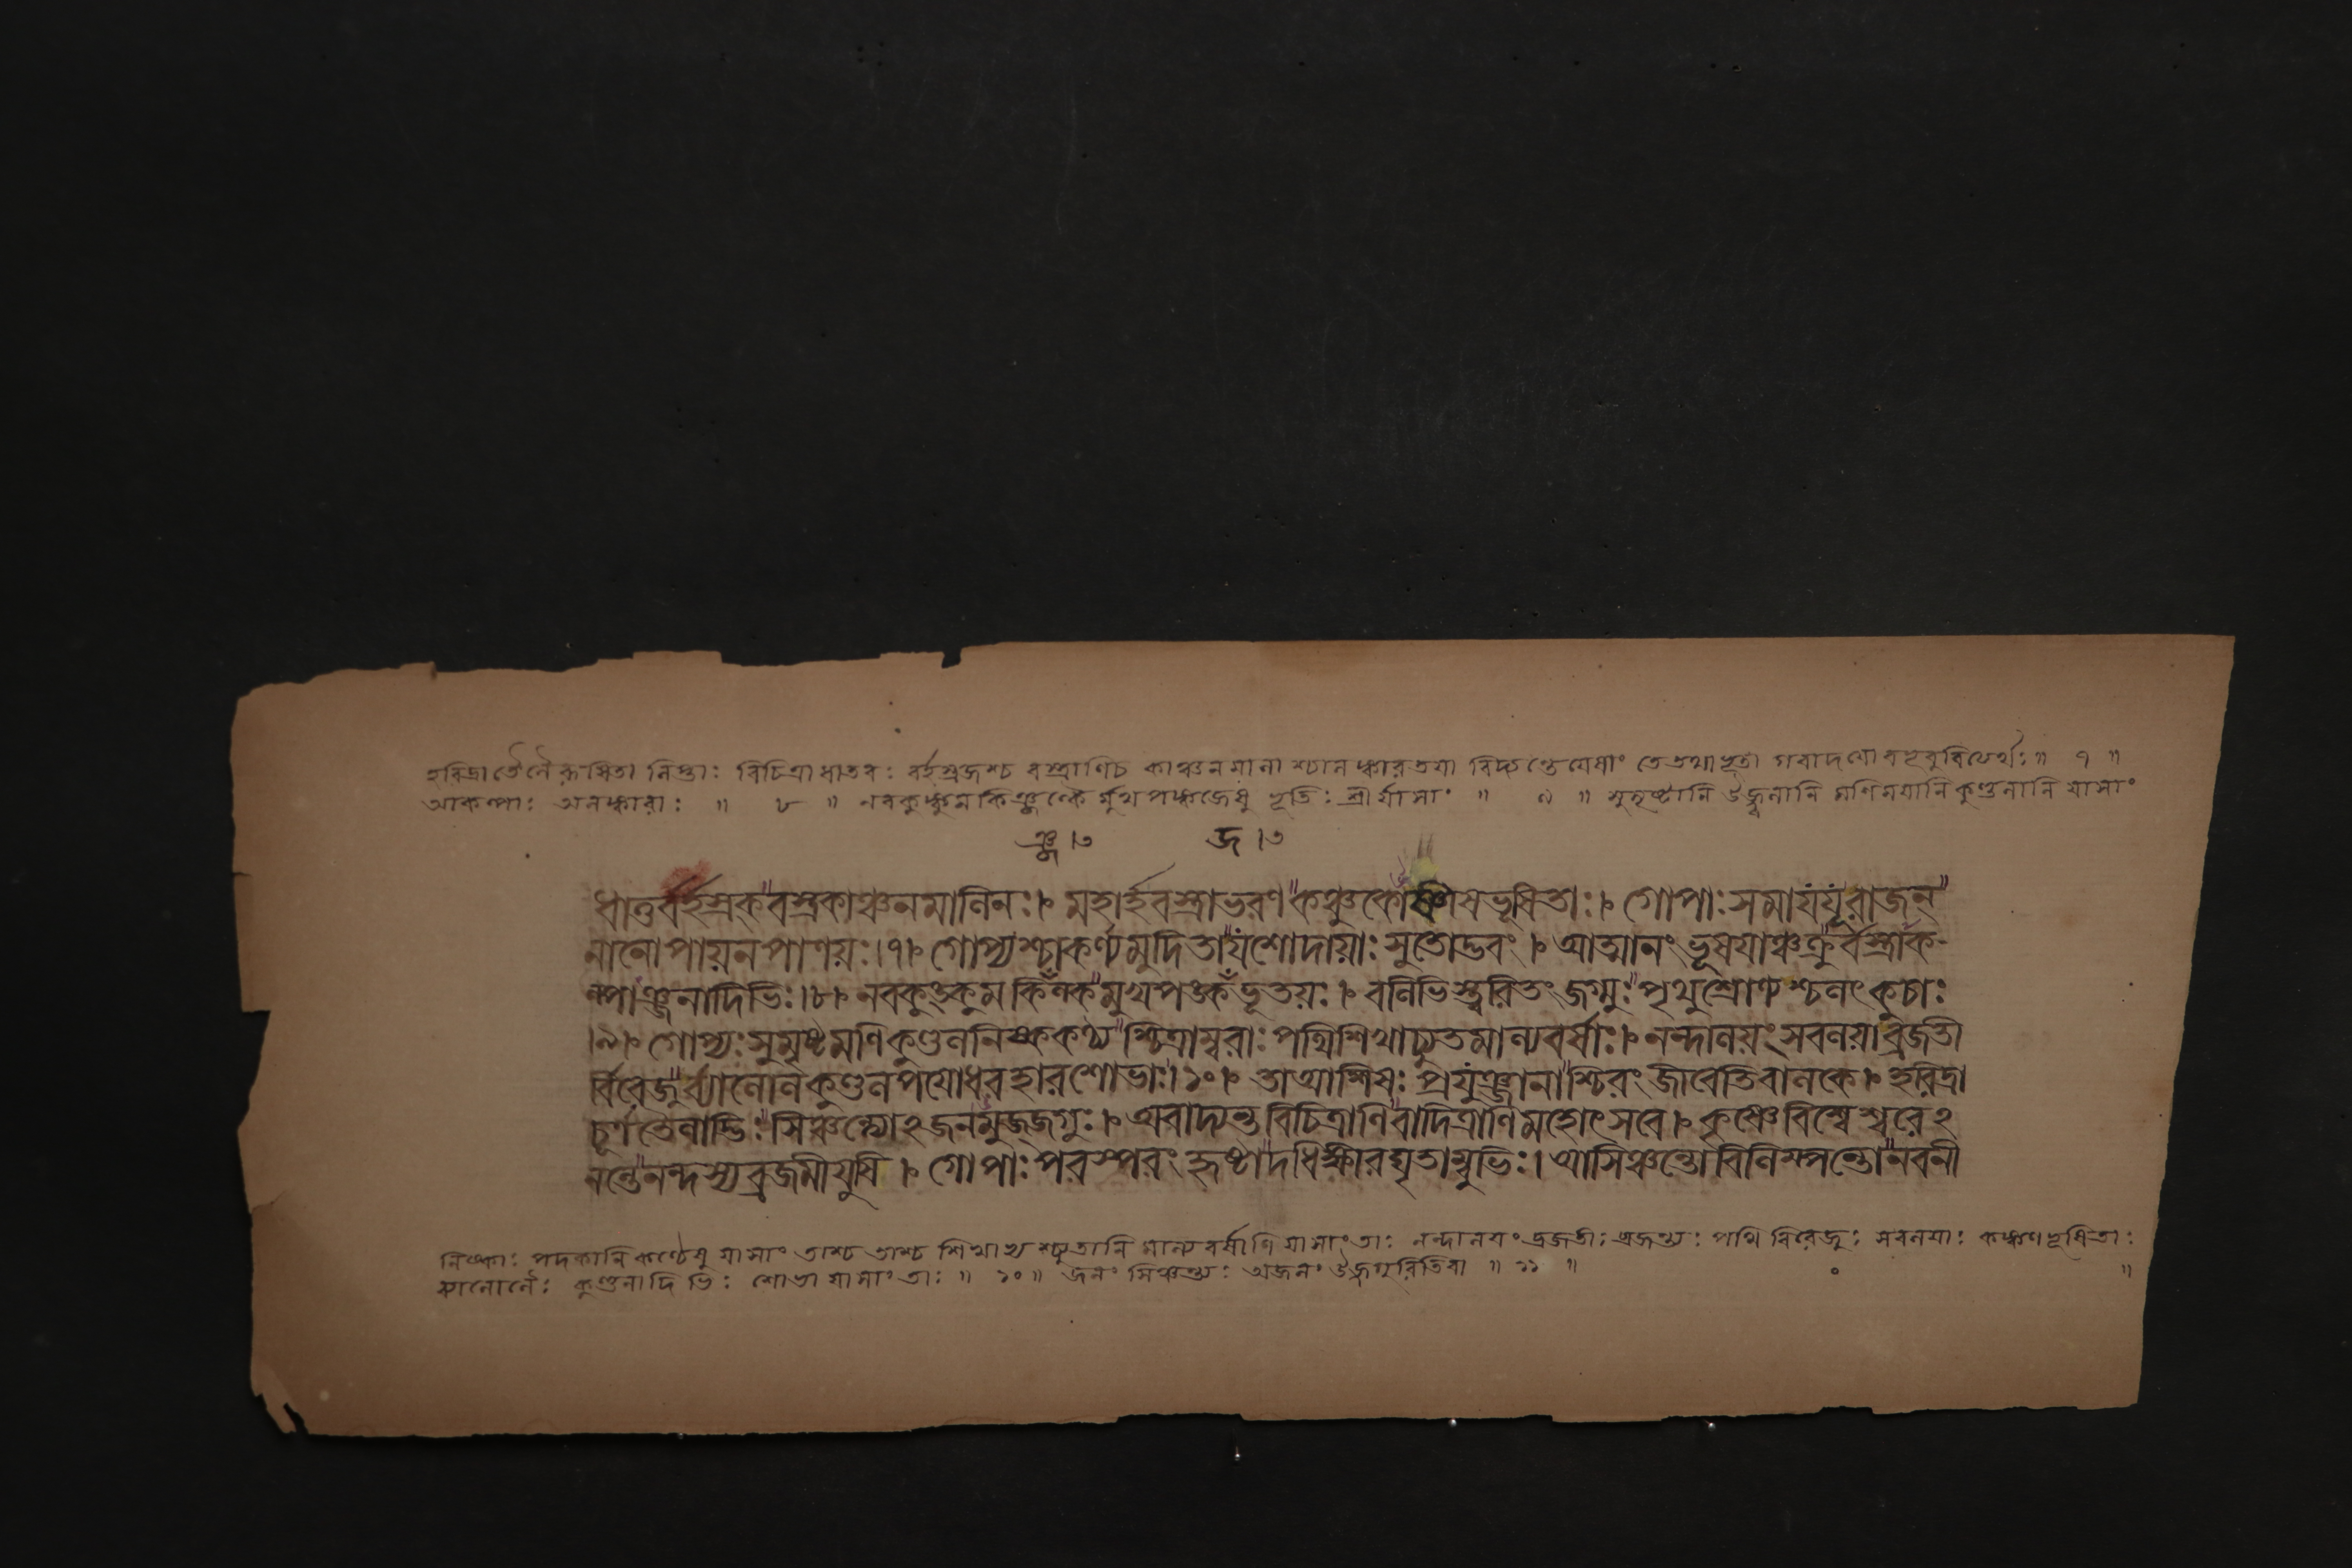 হরিদ্রাতৈলৈরূষিতা লিপ্তাঃ বিচিত্রাধাতবঃ বর্হস্রজশ্চ বস্ত্রাণিচ কাঞ্চনমালাশ্চালঙ্কারতযা বিদ্যন্তেযেষাং তেতথাভূতা গবাদযোবভূবুরিত্যর্থঃ॥ ৭ ॥
আকল্পাঃ অলঙ্কারাঃ ॥ ৮ ॥ নবকুঙ্কুমকিঞ্জল্কৈর্মুখপঙ্কজেষু ভূতিঃ শ্রীর্যাসাং ॥ ৯ ॥ সুমৃষ্টানি উজ্জ্বলানি মণিমযানি কুণ্ডলানি যাসাং
ঞ্জ।৩ জ।৩
ধাতুবর্হস্রকবস্ত্রকাঞ্চনমালিনঃ।৮ মহার্হবস্ত্রাভরণকঞ্চুকোষ্ণীষভূষিতাঃ।৮ গোপাঃসমাযযূরাজন্
নানোপায়নপাণয়ঃ।৭। গোপ্যশ্চাকর্ণ্যমুদিতাযশোদায়াঃ সুতোদ্ভবং।৮ আত্মানং ভূষযাঞ্চক্রুর্বস্ত্রাক-
ল্পাঞ্জনাদিভিঃ।৮। নবকুঙ্কুমকিঁল্কমুখপঙ্কঁভূতয়ঃ।৮ বলিভিস্ত্বরিতং জগ্মুঃপৃথুশ্রোণ্যশ্চলৎকুচাঃ
।৯। গোপ্যঃসুমৃষ্টমণিকুণ্ডলনিষ্ককণ্ঠ্যশ্চিত্রাম্বরাঃ পথিশিখাচ্যুতমাল্যবর্ষাঃ।৮ নন্দালয়ংসবলয়াব্রজতী
র্বিরেজুর্ব্যালোলকুণ্ডলপযোধরহারশোভাঃ।১০। তাআশিষঃ প্রযুঞ্জানাশ্চিরং জীবেতিবালকে।৮ হরিদ্রা
চূর্ণতৈলাদ্ভিঃসিঞ্চন্ত্যোঽজনমুজ্জগুঃ।৮ অবাদ্যন্তবিচিত্রাণিবাদিত্রাণিমহোৎসবে।৮ কৃষ্ণেবিশ্বেশ্বরেঽ
নন্তেনন্দস্যব্রজমীযুষি।৮ গোপাঃপরস্পরং হৃষ্টাদধিক্ষীরঘৃতাম্বুভিঃ। আসিঞ্চন্তোবিলিম্পন্তোনবনী
নিষ্কাঃ পদকানি কণ্ঠেষু যাসাং তাশ্চ তাশ্চ শিখাভ্যশ্চ্যুতানি মাল্যবর্ষাণি যাসাংতাঃ নন্দালযং ব্রজতীঃব্রজন্ত্যঃ পথি বিরেজুঃ সবলযাঃ কঙ্কণভূষিতাঃ
ব্যালোলৈঃ কুণ্ডলাদিভিঃ শোভা যাসাংতাঃ ॥ ১০॥ জনং সিঞ্চন্ত্যঃ অজনং উজ্জগুরিতিবা ॥ ১১ ॥ ॥